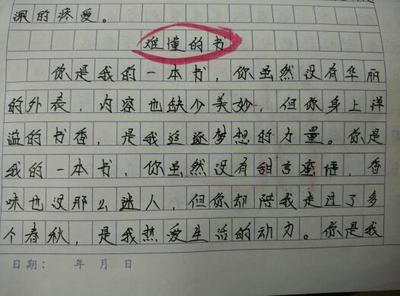 溺的疼爱。
难懂的书
你是我的一本书，你虽然没有华丽
的外表，内容也缺少美妙，但你身上洋
溢的书香，是我追逐梦想的力量。你是
我的一本书，你虽然没有甜言蜜语，香
味也没那么迷人，但你却陪我走过了多
个春秋，是我热爱生活的动力。你是我
日期： 年 月 日